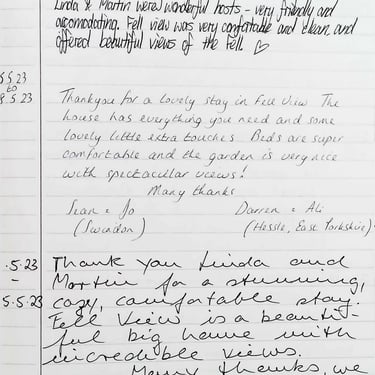 Linda & Martin were wonderful hosts - very friendly and
accomodating. Fell view was very comfortable and clean and
offered beautiful views of the Fell. ♡
5.5.23
to
8.5.23
Thankyou for a lovely stay in Fell View The
house has everything you need and some
lovely little extra touches. Beds are super
comfortable and the garden is very nice
with spectacular views!
Many thanks
Sean & Jo
(Swindon)
Darren & Ali
(Hessle, East Yorkshire)
.5.23
-
5.5.23
Thank you Linda and
Martin for a stunning,
cozy, comfortable stay.
Fell View is a beauti-
ful big home with
incredible views.
Many thanks, we